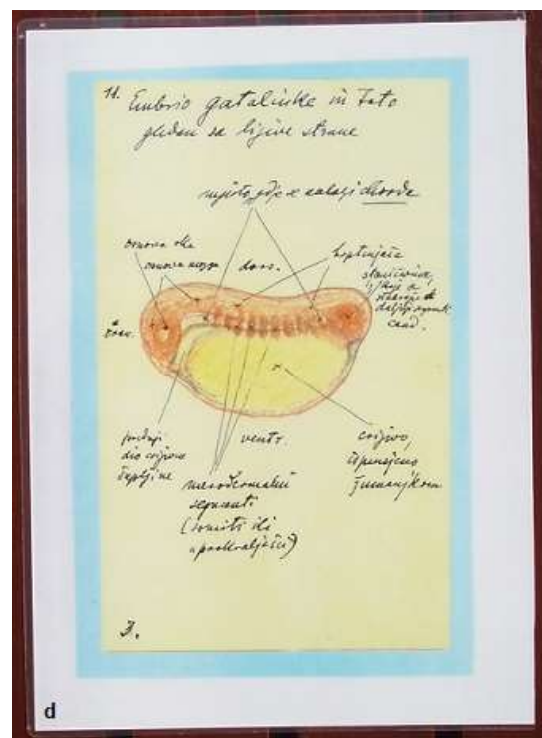 11. Embrio gatalinke in toto
gledan sa lijeve strane
mjesto gdje se nalazi chorda
osnova oka
osnova mozga
dors.
kralježnica
caud.
prednji
dio crijevne
šupljine
ventr.
crijevo,
ispunjeno
žumanjkom
mesodermalni
segmenti
(somiti ili
prakralješci)
3.
d